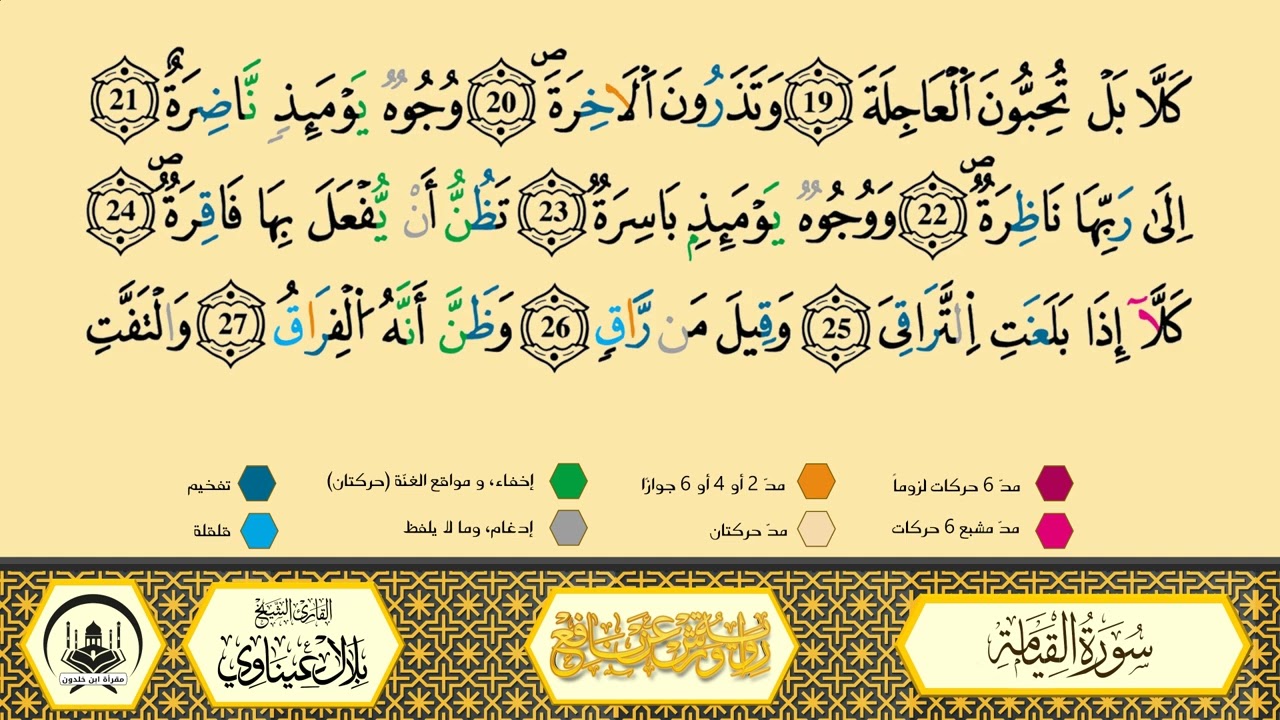 كَلَّا بَلْ تُحِبُّونَ اَ۬لْعَاجِلَةَ 19 وَتَذَرُونَ اَ۬لَاخِرَةَۖ 20 وُجُوهٞ يَوْمَئِذٖ نَّاضِرَةٌ 21
اِلَىٰ رَبِّهَا نَاظِرَةٞۖ 22 وَوُجُوهٞ يَوْمَئِذِۢ بَاسِرَةٞ 23 تَظُنُّ أَنْ يُّفْعَلَ بِهَا فَاقِرَةٞۖ 24
كَلَّآ إِذَا بَلَغَتِ اِ۬لتَّرَاقِىَ 25 وَقِيلَ مَن رَّاقٖ 26 وَظَنَّ أَنَّهُ اُ۬لْفِرَاقُ 27 وَالْتَفَّتِ
مدّ 6 حركات لزوماً مدّ 2 أو 4 أو 6 جوازًا إخفاء، و مواقع الغنّة (حركتان) تفخيم
مدّ مشبع 6 حركات مدّ حركتان إدغام، وما لا يلفظ قلقلة
سُورَةُ القِيَامَة
رواية ورش عن نافع
القارئ الشيخ
بلال عيناوي
مقرأة ابن خلدون